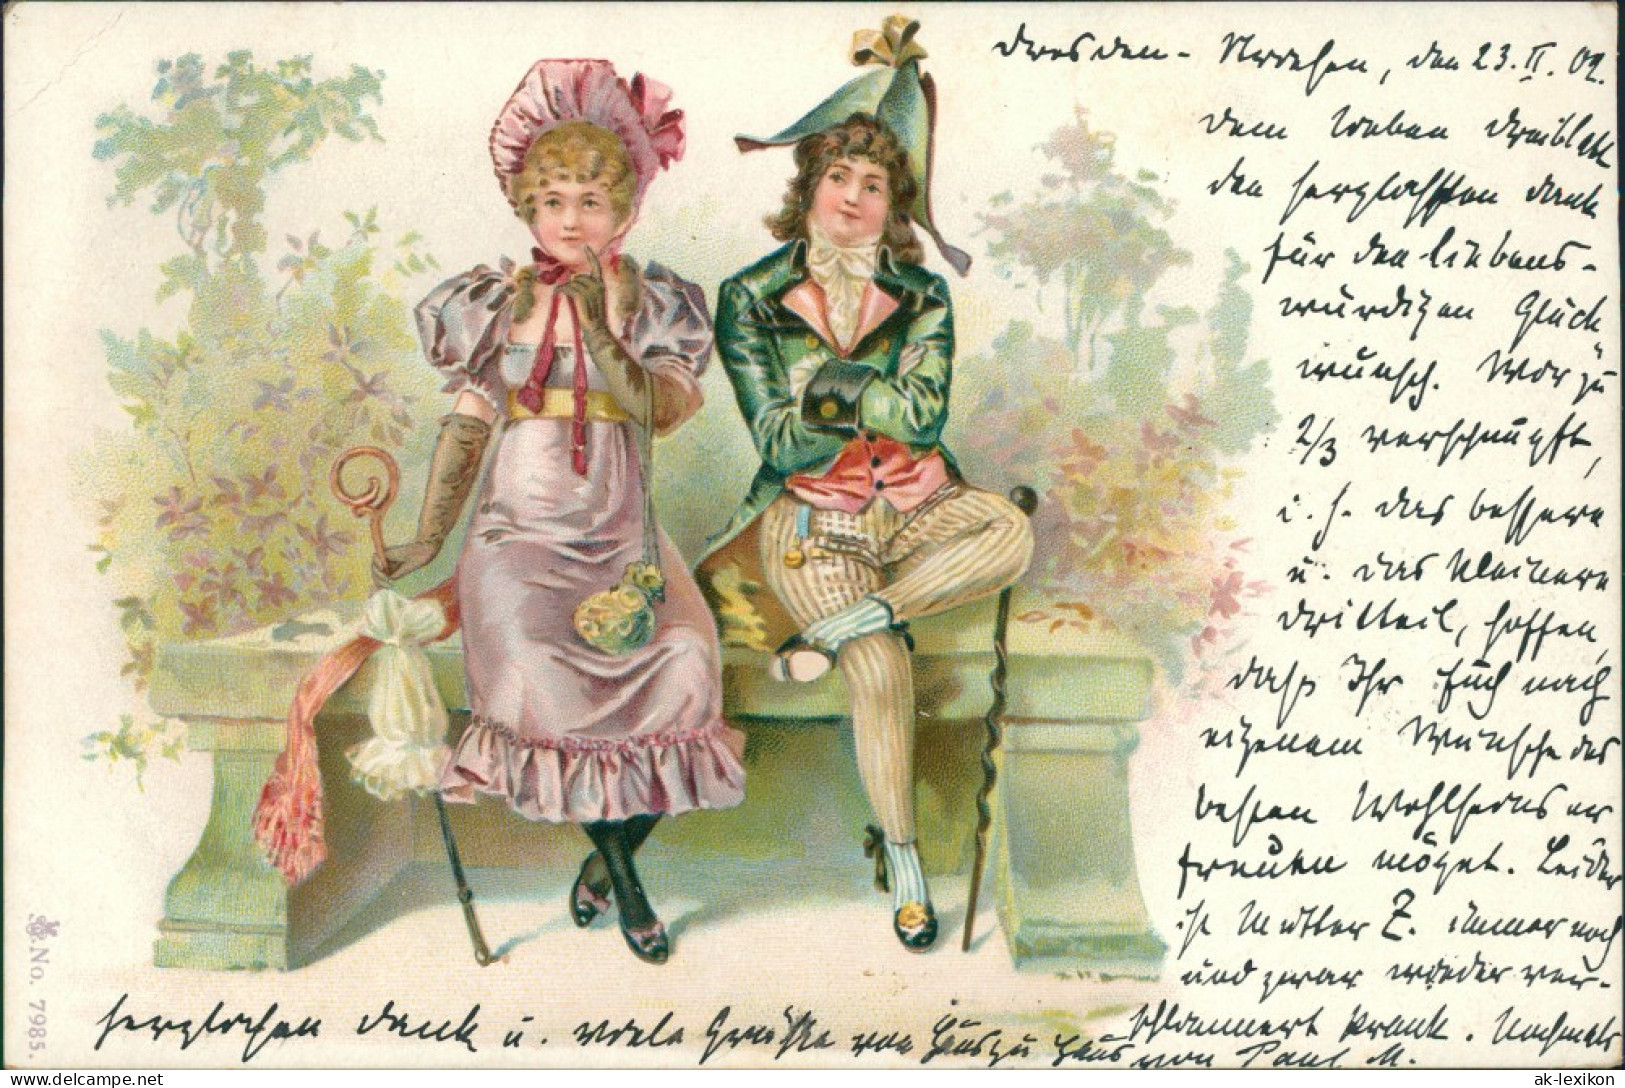 Dresden - Strehlen, den 23. II. 02.
Dem lieben Dreiblatt
den herzlichsten Dank
für den liebens-
würdigen Glück-
wunsch. Wir zu
2/3 verschnupft,
i. s. das bessere
u. das kleinere
Dritteil, hoffen,
dass Ihr Euch nach
eigenem Wunsche des
besten Wohlseins er
freuen möget. Leider
ist Mutter Z. immer noch
und zwar wieder ver-
schlimmert krank. Nochmals
herzlichen Dank u. viele Grüße von Haus zu Haus
von Paul M.
No. 7985.
ak-lexikon